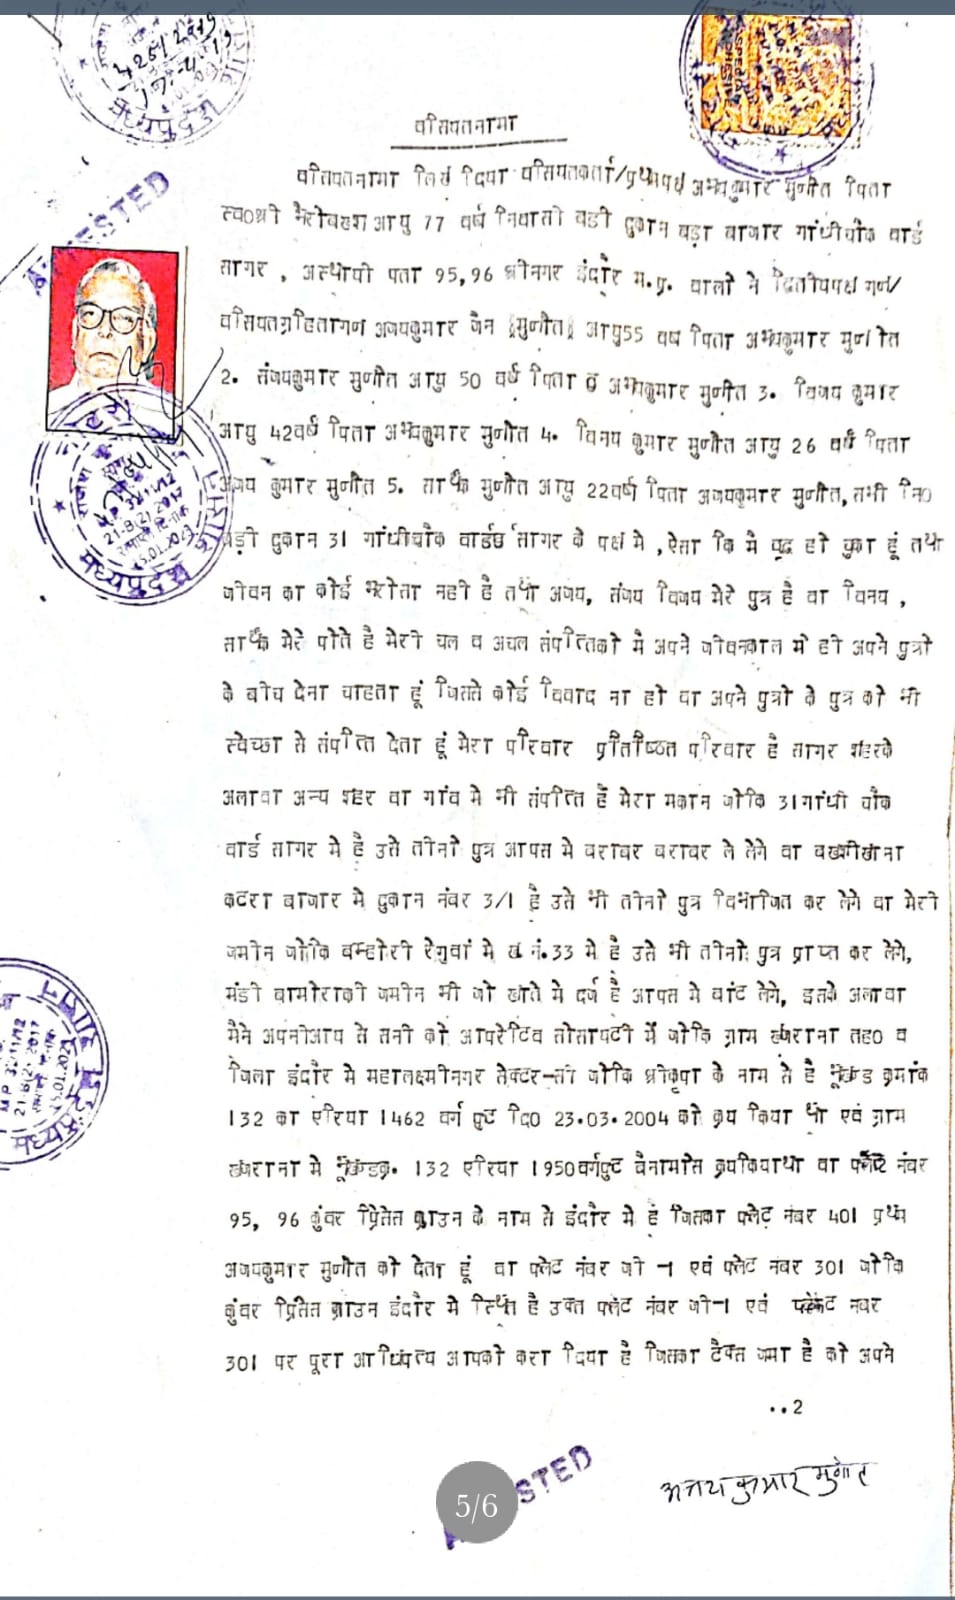 वसियतनामा
वसियतनामा लिख दिया वसियतकर्ता/प्रथमपक्ष अभयकुमार मुणोत पिता
स्व0श्री भैरोबख्श आयु 77 वर्ष निवासी बडी दुकान बड़ा बाजार गांधीचौक वार्ड
सागर , अस्थायी पता 95,96 श्रीनगर इंदौर म.प्र. वालो ने द्वितीयपक्ष गण/
वसियतग्रहितागण अजयकुमार जैन (मुणोत) आयु55 वर्ष पिता अभयकुमार मुणोत
2. संजयकुमार मुणोत आयु 50 वर्ष पिता अभयकुमार मुणोत 3. विजय कुमार
आयु 42वर्ष पिता अभयकुमार मुणोत 4. विनय कुमार मुणोत आयु 26 वर्ष पिता
अजय कुमार मुणोत 5. सार्थक मुणोत आयु 22वर्ष पिता अजयकुमार मुणोत,सभी नि0
बड़ी दुकान 31 गांधीचौक वार्ड सागर के पक्ष मे ,ऐसा कि मै वृद्ध हो चुका हूं तथा
जीवन का कोई भरोसा नही है तथा अजय, संजय विजय मेरे पुत्र है वा विनय ,
सार्थक मेरे पोते है मेरी चल व अचल संपत्तिको मै अपने जीवनकाल मे ही अपने पुत्रो
के बीच देना चाहता हूं जिससे कोई विवाद ना हो वा अपने पुत्रो के पुत्र को भी
स्वेच्छा से संपत्ति देता हूं मेरा परिवार प्रतिष्ठित परिवार है सागर शहरके
अलावा अन्य शहर वा गांव मे भी संपत्ति है मेरा मकान जोकि 31गांधी चौक
वार्ड सागर मे है उसे तीनो पुत्र आपस मे बराबर बराबर ले लेगे वा बख्शीखाना
कटरा बाजार मे दुकान नंबर 3/1 है उसे भी तीनो पुत्र विभाजित कर लेगे वा मेरी
जमीन जोकि बम्होरी रेगुवां मे ख नं.33 मे है उसे भी तीनो पुत्र प्राप्त कर लेगे,
मंडी बामोराकी जमीन भी जो खाते मे दर्ज है आपस मे बांट लेगे, इसके अलावा
मैने अपनीआय से सनी को आपरेटिव सोसायटी में जोकि ग्राम खजराना तह0 व
जिला इंदौर मे महालक्ष्मीनगर सेक्टर-सी जोकि श्रीकृपा के नाम से है भूखंड क्रमांक
132 का एरिया 1462 वर्ग फुट दि0 23.03.2004 को क्रय किया था एवं ग्राम
खजराना मे भूखंडक्र. 132 एरिया 1950वर्गफुट बैनामासे क्रयकियाथा वा फ्लेट नंबर
95, 96 कुंवर प्रितेत क्राउन के नाम से इंदौर मे है जिसका फ्लेट नंबर 401 प्रथम
अजयकुमार मुणोत को देता हूं वा फ्लेट नंबर जी -1 एवं फ्लेट नंबर 301 जोकि
कुंवर प्रितेत क्राउन इंदौर मे स्थित है उक्त फ्लेट नंबर जी-1 एवं फ्लेट नंबर
301 पर पूरा आधिपत्य आपको करा दिया है जिसका टैक्स जमा है को अपने
..2
अभय कुमार मुणोत
5/6